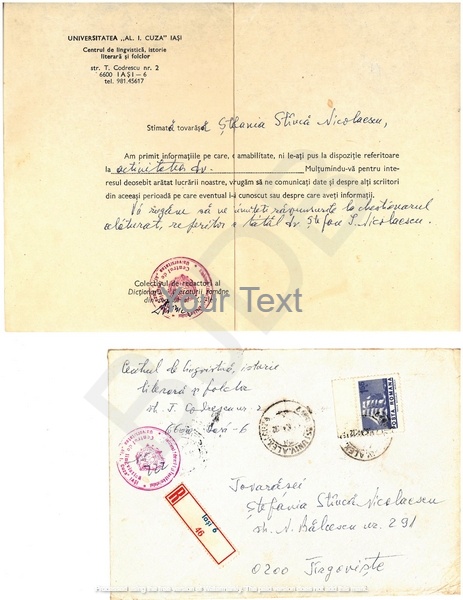 UNIVERSITATEA „AL. I. CUZA” IAȘI
Centrul de lingvistică, istorie
literară și folclor
str. T. Codrescu nr. 2
6600 IAȘI—6
tel. 981.45617
Stimată tovarășă Ștefania Stîncă Nicolaescu,
Am primit informațiile pe care, cu amabilitate, ni le-ați pus la dispoziție referitoare
la activitatea dv. Mulțumindu-vă pentru inte-
resul deosebit arătat lucrării noastre, vă rugăm să ne comunicați date și despre alți scriitori
din aceeași perioadă pe care eventual i-ați cunoscut sau despre care aveți informații.
Vă rugăm să ne trimiteți răspunsurile la chestionarul
alăturat, referitor la tatăl dv Ștefan I. Nicolaescu.
Colectivul de redactori al
Dicționarului literaturii române
Your Text
Centrul de lingvistică, istorie
literară și folclor
str. T. Codrescu nr. 2
6600 Iași-6
POȘTA ROMÂNĂ
R
Iași 6
46
Tovarășei
Ștefania Stîncă Nicolaescu
str. N. Bălcescu nr. 291
0200 Tîrgoviște